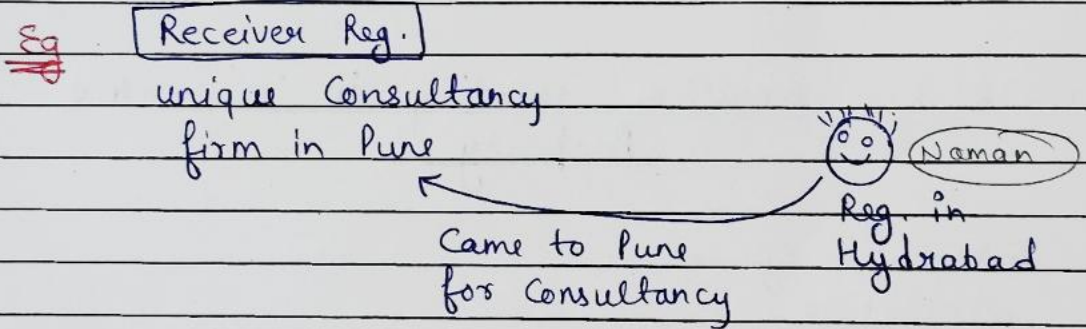 Eg
Receiver Reg.
unique Consultancy
firm in Pune
Naman
Reg. in
Hydrabad
Came to Pune
for Consultancy